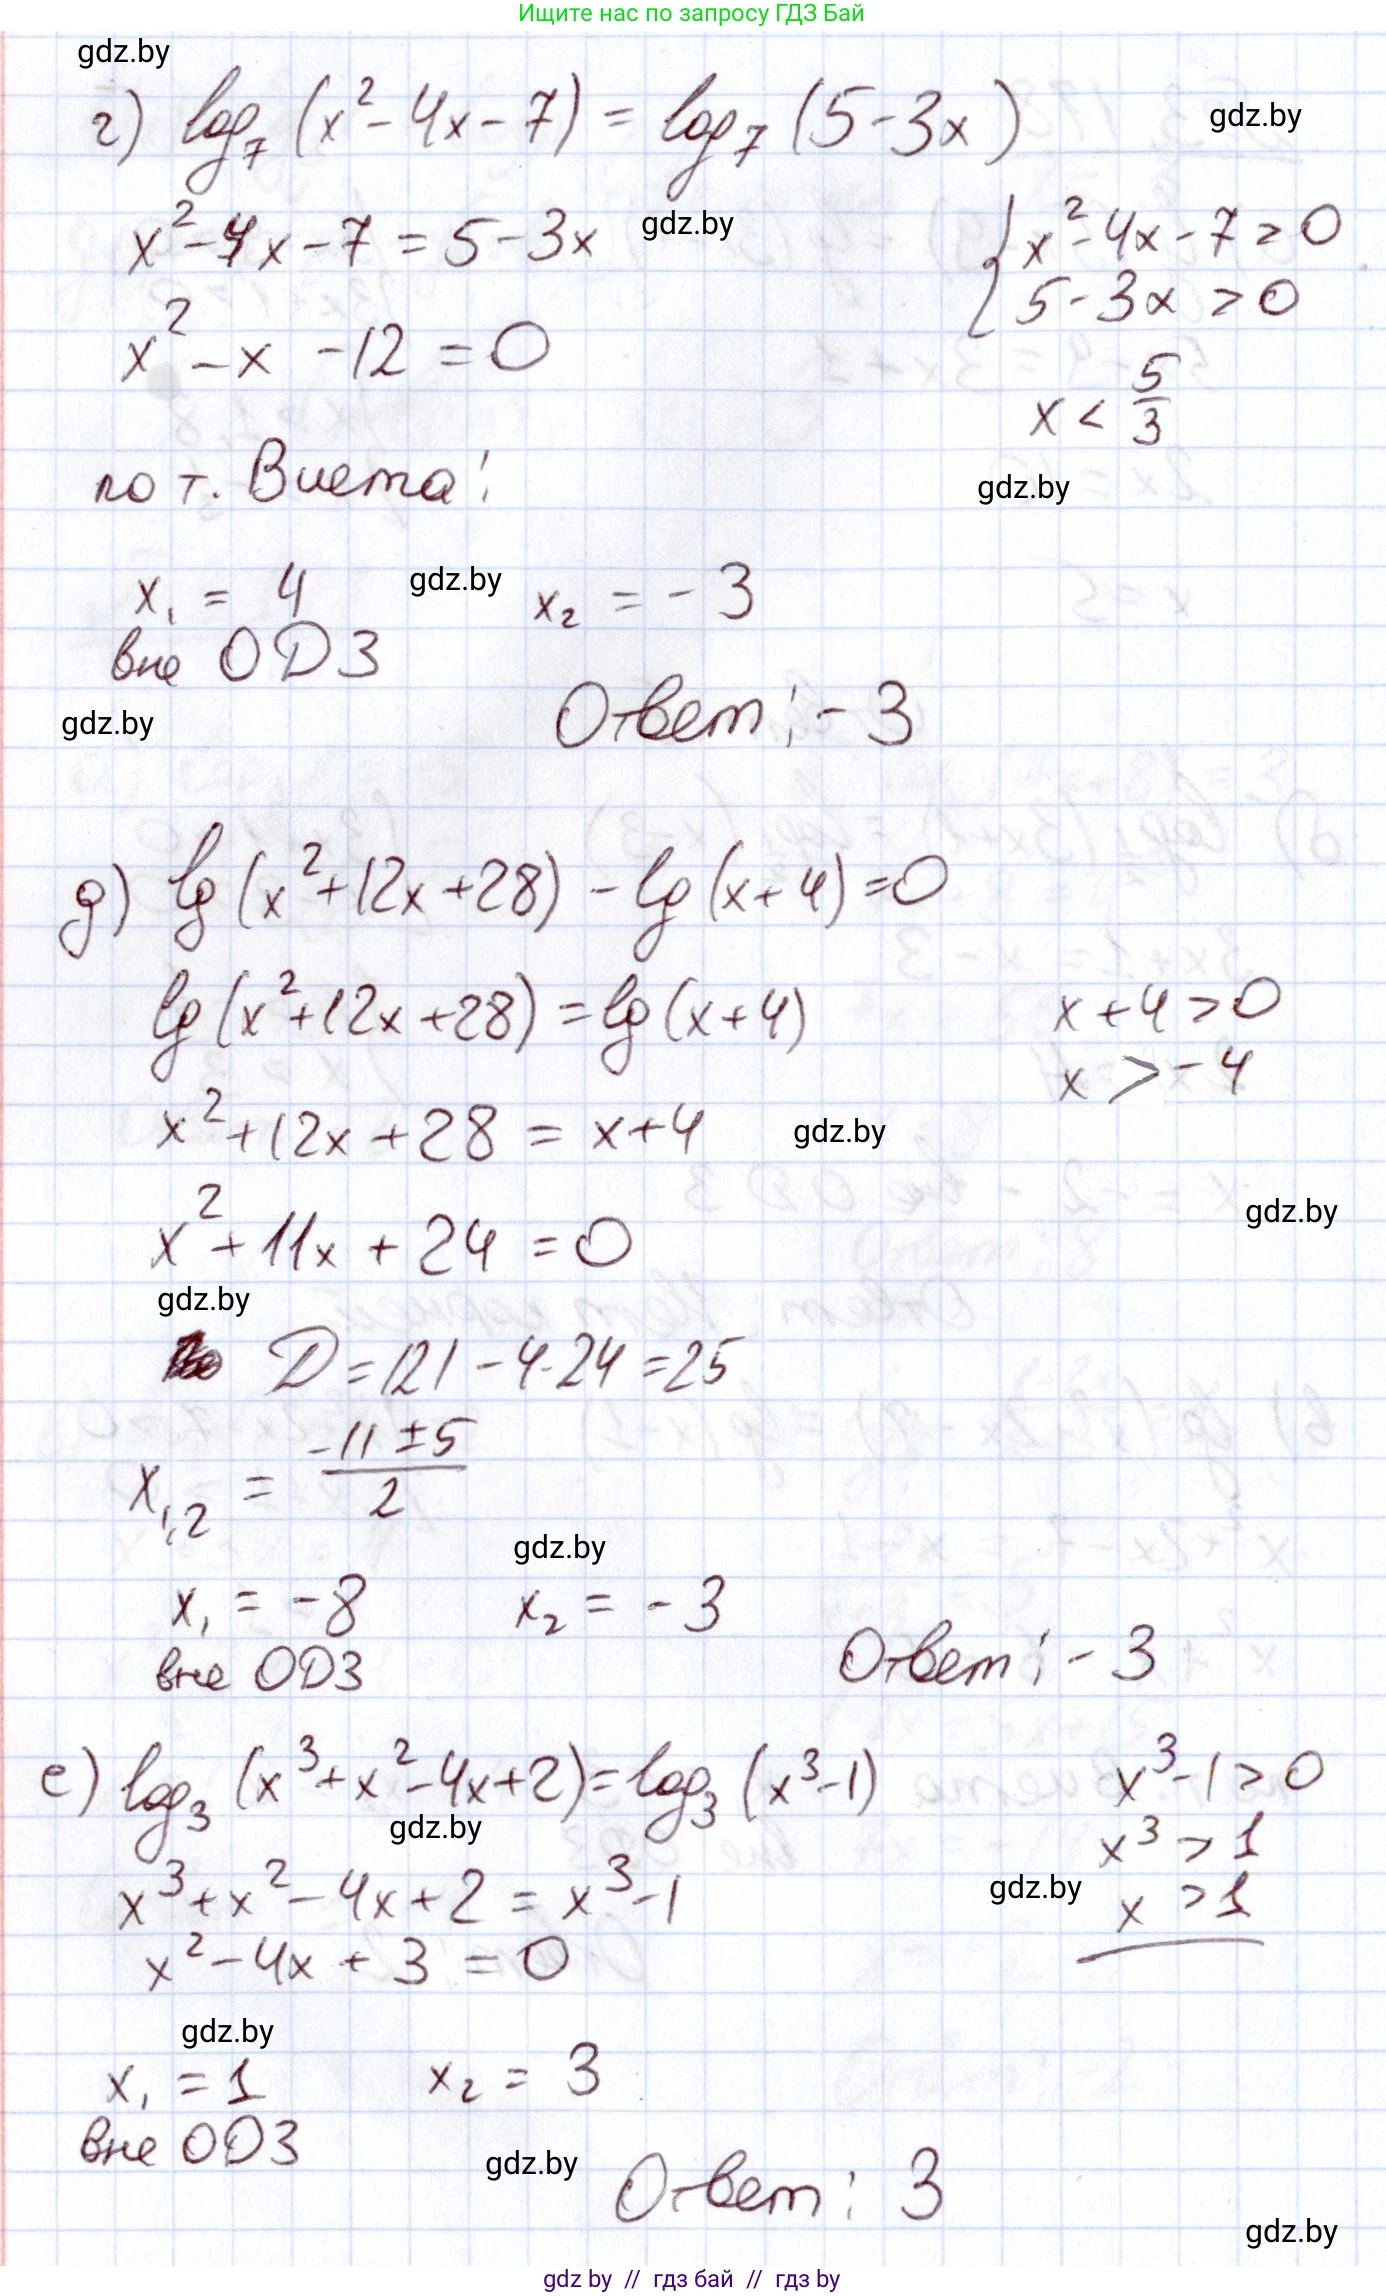 Ищите нас по запросу ГДЗ Бай
gdz.by
г) log₇ (x² - 4x - 7) = log₇ (5 - 3x)
gdz.by
x² - 4x - 7 = 5 - 3x
gdz.by
{ x² - 4x - 7 > 0
5 - 3x > 0
x² - x - 12 = 0
x < 5/3
по т. Виета:
gdz.by
x₁ = 4
gdz.by
x₂ = -3
вне ОДЗ
gdz.by
Ответ: -3
д) lg (x² + 12x + 28) - lg (x + 4) = 0
lg (x² + 12x + 28) = lg (x + 4)
x + 4 > 0
x > -4
x² + 12x + 28 = x + 4
gdz.by
gdz.by
x² + 11x + 24 = 0
gdz.by
D = 121 - 4·24 = 25
x₁,₂ = (-11 ± 5)/2
gdz.by
x₁ = -8
x₂ = -3
вне ОДЗ
Ответ: -3
е) log₃ (x³ + x² - 4x + 2) = log₃ (x³ - 1)
x³ - 1 > 0
gdz.by
x³ > 1
x³ + x² - 4x + 2 = x³ - 1
gdz.by
x > 1
x² - 4x + 3 = 0
gdz.by
x₁ = 1
x₂ = 3
вне ОДЗ
gdz.by
Ответ: 3
gdz.by
gdz by // гдз бай // гдз by